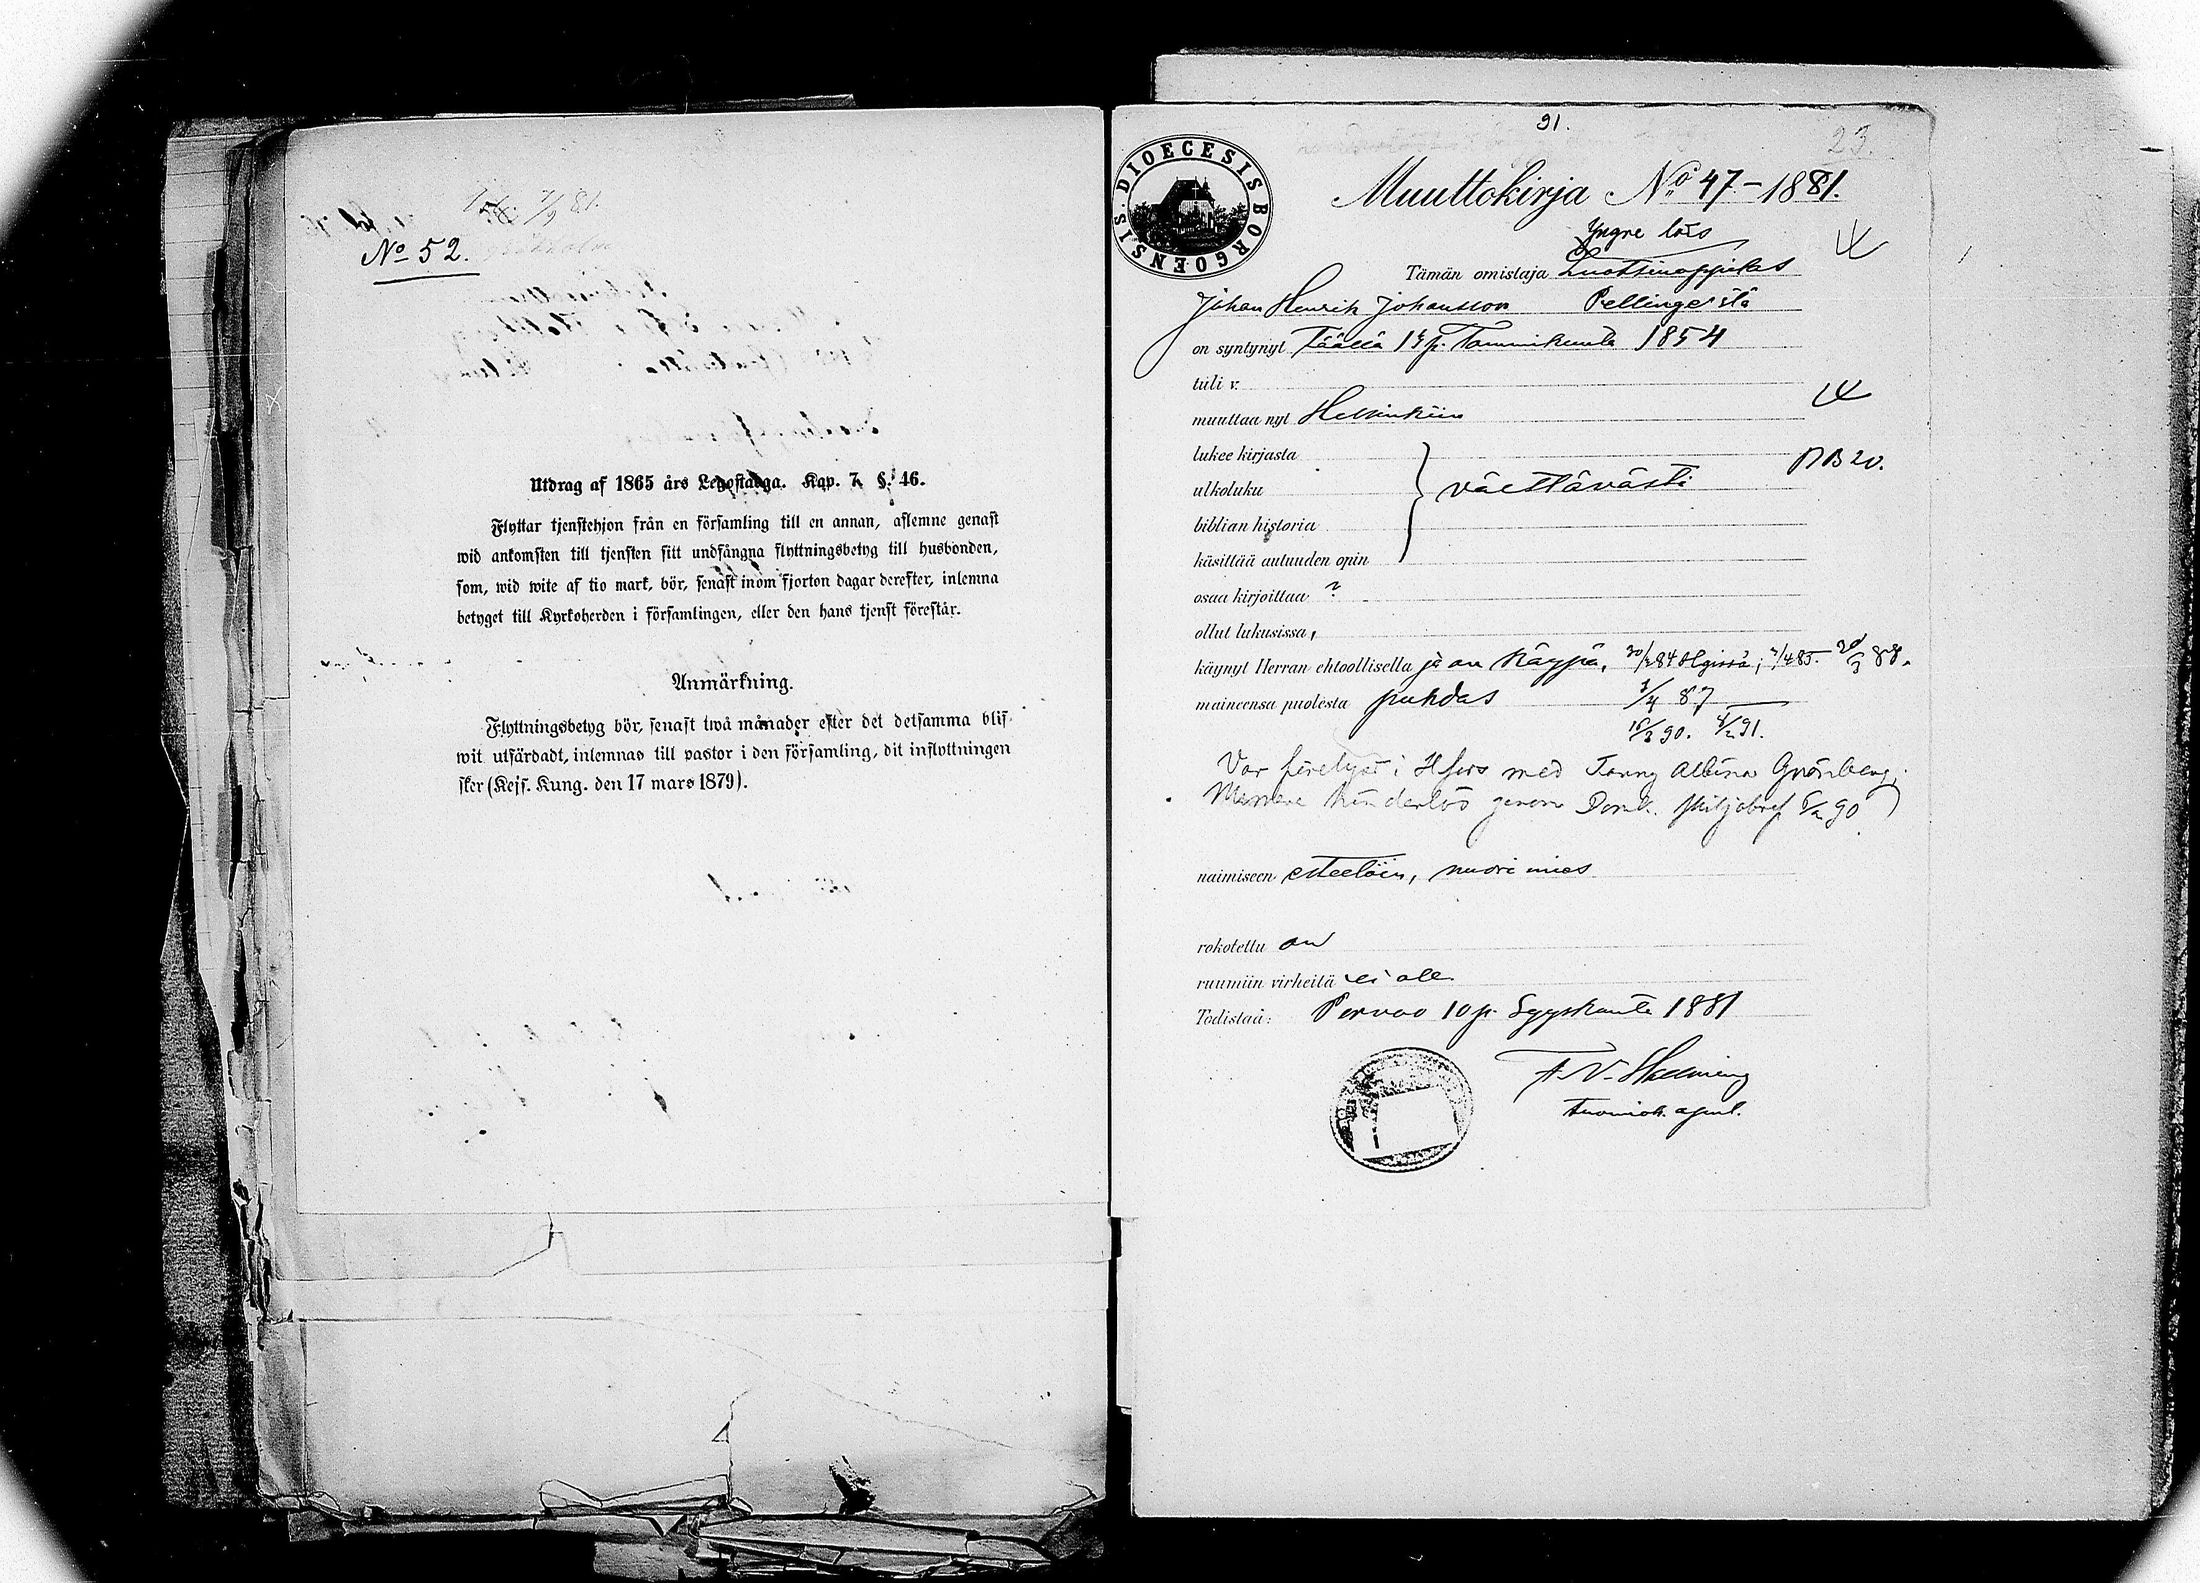 No 52.
Utdrag af 1865 års Legostadga. Kap. 7. §. 46.
Flyttar tjenstehjon från en församling till en annan, aflemne genast
wid ankomsten till tjensten sitt undfångna flyttningsbetyg till husbonden,
som, wid wite af tio mark, bör, senast inom fjorton dagar derefter, inlemna
betyget till Kyrkoherden i församlingen, eller den hans tjenst förestår.
Anmärkning.
Flyttningsbetyg bör, senast twå månader efter det detsamma blif-
wit utfärdadt, inlemnas till pastor i den församling, dit inflyttningen
sker (Kejs. Kung. den 17 mars 1879).
91.
23.
DIOECESIS BORGOENSIS
Muuttokirja No 47 - 1881.
Yngre lots
Tämän omistaja Luotsinoppilas
Johan Henrik Johansson Pellinge'stä
on syntynyt Täällä 14 p. Tammikuuta 1854
tuli v.
muuttaa nyt Helsinkiin
lukee kirjasta
ulkoluku välttävästi BB 20.
biblian historia
käsittää autuuden opin
osaa kirjoittaa ?
ollut lukusissa,
käynyt Herran ehtoollisella ja on käypä,
maineensa puolesta puhdas 87
90. 91.
Var förelyst i Hfors med Fanny Albina Grönberg;
genom Domk. skiljobref 90
naimiseen esteetöin, nuori mies
rokotettu on
ruumiin virheitä ei ole
Todistaa: Porvoo 10 p. Syyskuuta 1881